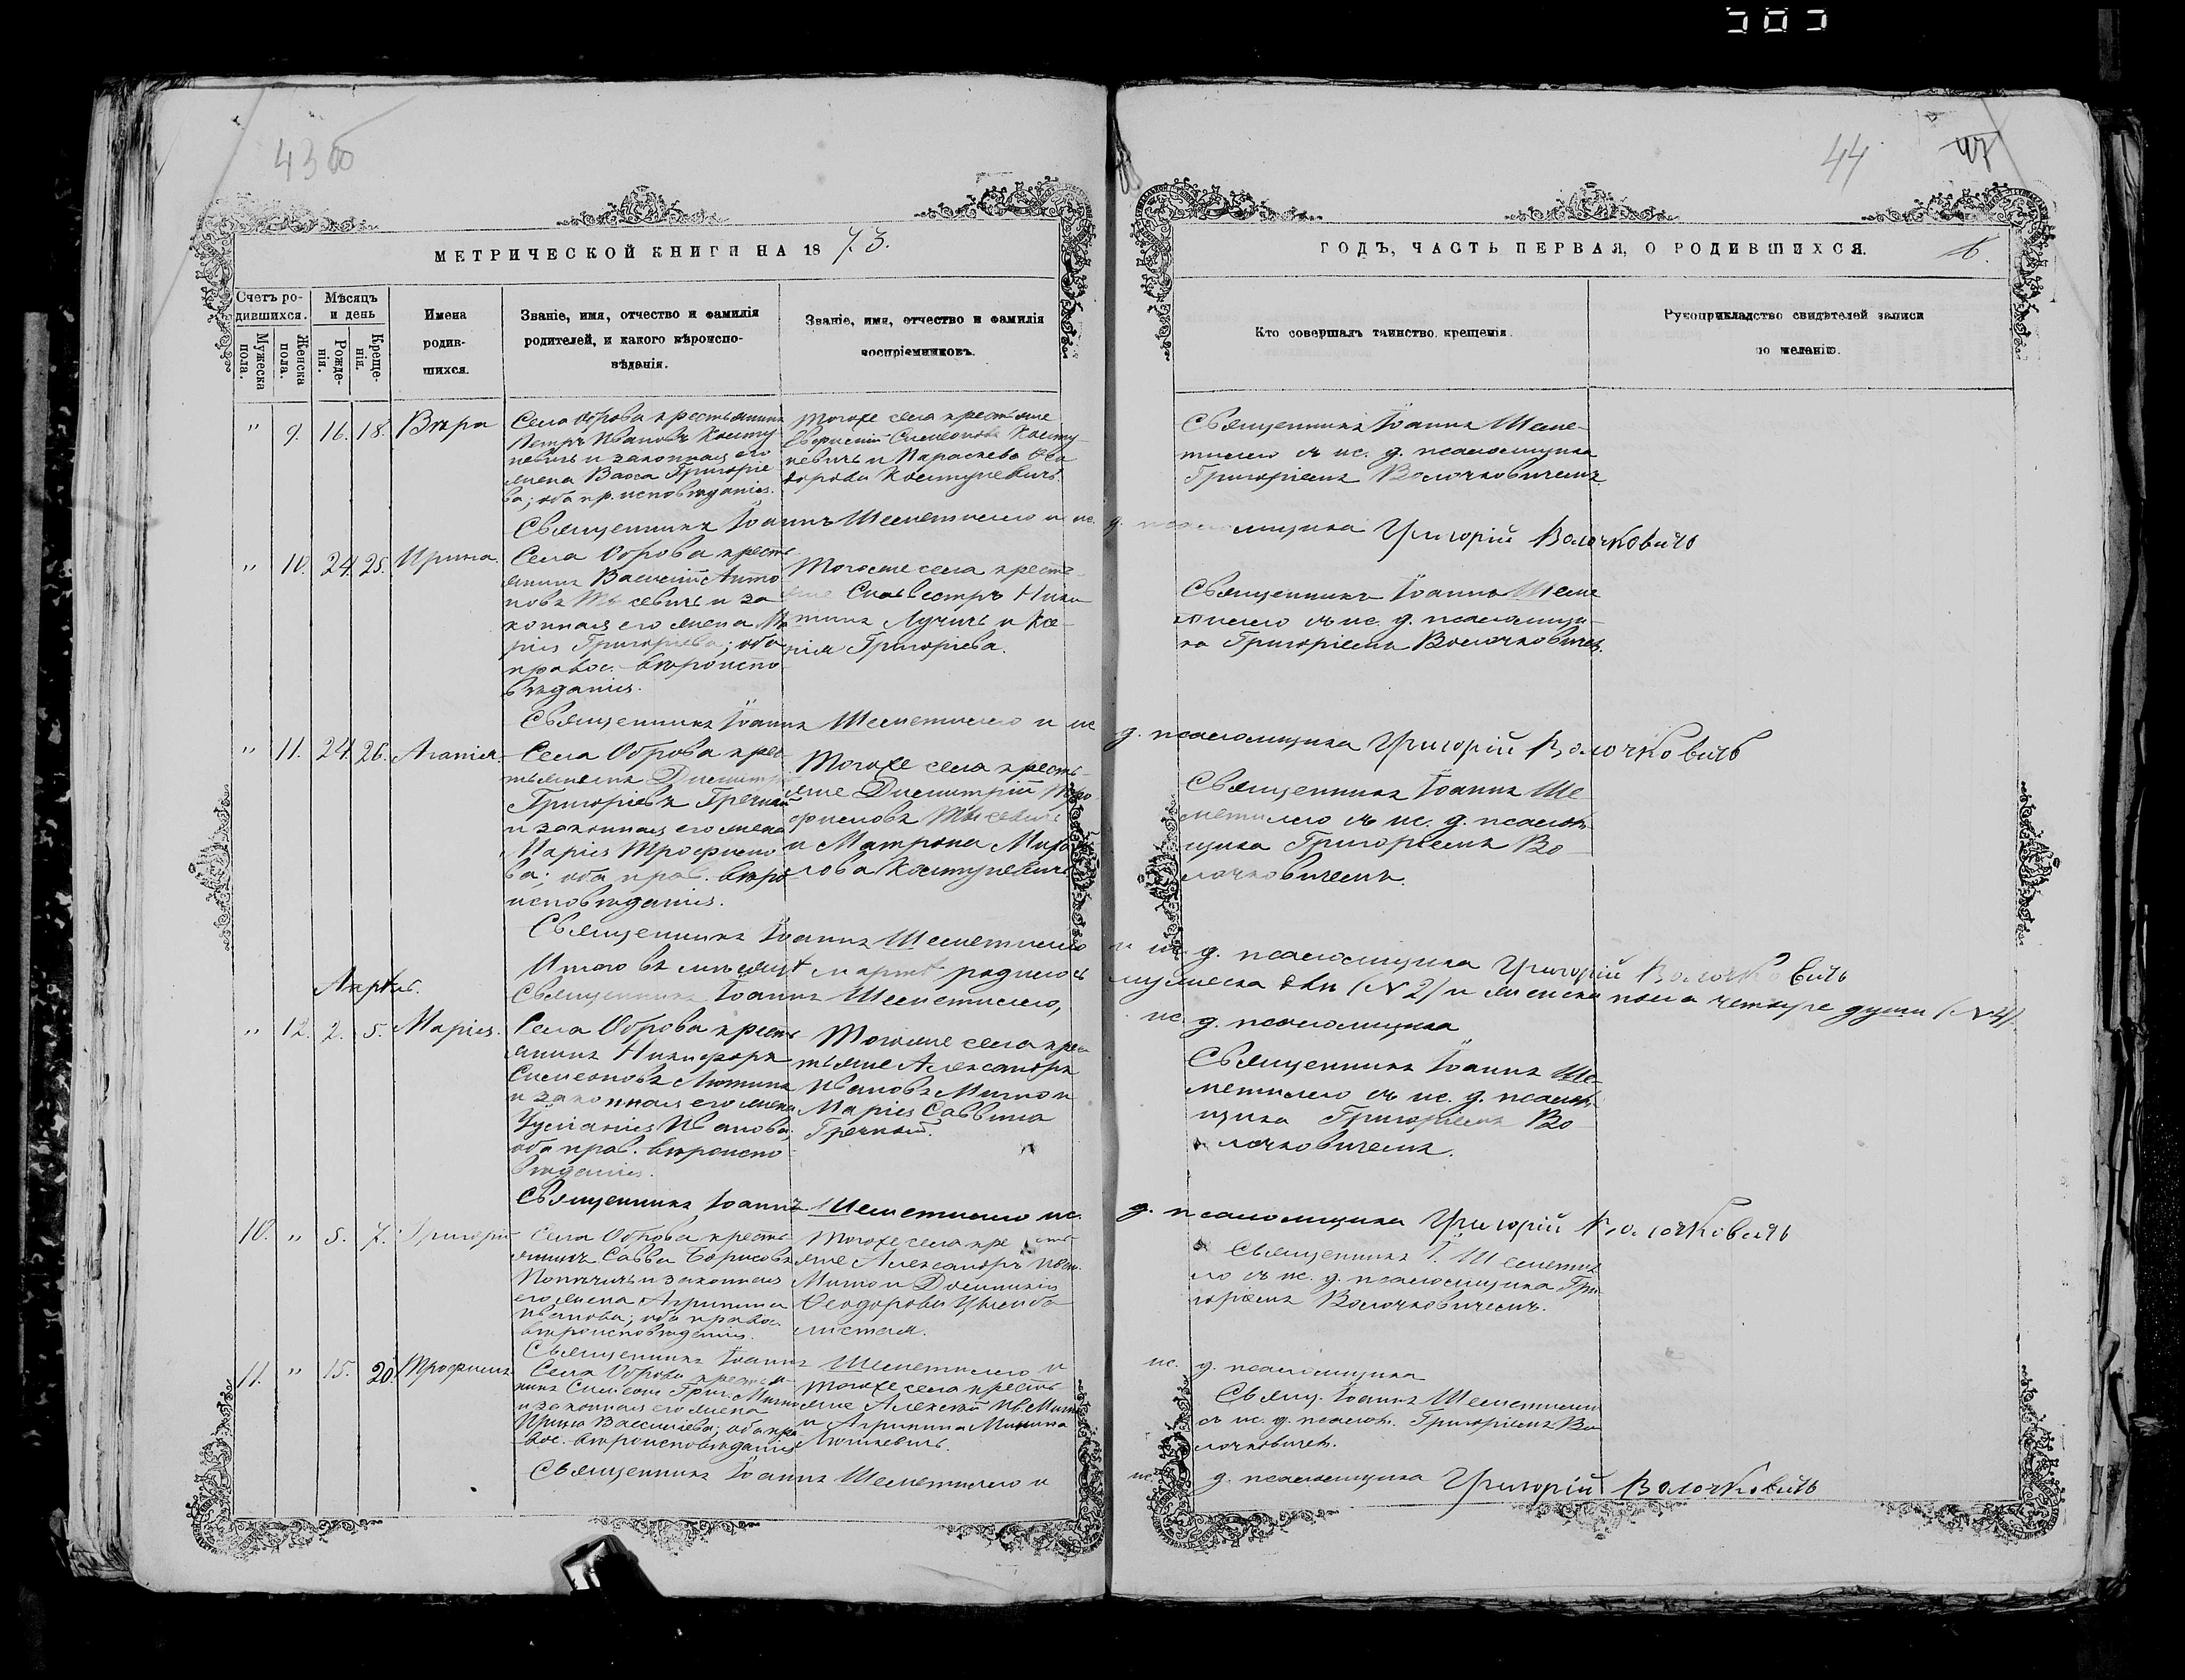 43 об
44
МЕТРИЧЕСКОЙ КНИГИ НА 1873.
ГОДЪ, ЧАСТЬ ПЕРВАЯ, О РОДИВШИХСЯ.
Счетъ родившихся.
Мужеска пола.
Женска пола.
Мѣсяцъ и день
Рожденія.
Крещенія.
Имена
родив-
шихся.
Званіе, имя, отчество и фамилія
родителей, и какого вѣроиспо-
вѣданія.
Званіе, имя, отчество и фамилія
воспріемниковъ.
Кто совершалъ таинство крещенія.
Рукоприкладство свидѣтелей записи
по желанію.
" 9. 16. 18. Вѣра
Села Оброва крестьянинъ
Петръ Ивановъ Косту-
кевичъ и законная его
жена Васса Григорье-
ва; оба пр. исповѣданія.
Тогоже села крестьяне
Симеоновъ Косту-
кевичъ и Параскева Ѳео-
дорова Костукевичъ.
Священникъ Іоаннъ Шеме-
тилло съ ис. д. псаломщика
Григоріемъ Волочковичемъ.
Священникъ Іоаннъ Шеметилло и ис. д. псаломщика Григорій Волочковичъ
" 10. 24. 25. Ирина.
Села Оброва кресть-
янинъ Василій Анто-
новъ и за-
конная его жена Ма-
рія Григоріева; оба
правос. вѣроиспо-
вѣданія.
Тогоже села кресть-
яне Сильвестръ Ники-
тинъ Лучичъ и Ксе-
нія Григоріева.
Священникъ Іоаннъ Шеме-
тилло съ ис. д. псаломщи-
ка Григоріемъ Волочковичемъ.
Священникъ Іоаннъ Шеметилло и ис. д. псаломщика Григорій Волочковичъ
" 11. 24. 26. Агапія.
Села Оброва крес-
тьянинъ Димитрій
Григоріевъ Гречный
и законная его жена
Марія Трофимо-
ва; оба прав. вѣро-
исповѣданія.
Тогоже села кресть-
яне Димитрій Тро-
фимовъ
и Матрона Михай-
лова Костукевичъ
Священникъ Іоаннъ Ше-
метилло съ ис. д. псалом-
щика Григоріемъ Во-
лочковичемъ.
Священникъ Іоаннъ Шеметилло и ис. д. псаломщика Григорій Волочковичъ
Итого въ мѣсяцѣ мартѣ родилось мужеска два (№ 2) и женска пола четыре души (№ 4).
Священникъ Іоаннъ Шеметилло, ис. д. псаломщика
Апрѣль.
" 12. 2. 5. Марія.
Села Оброва кресть-
янинъ Никифоръ
Симеоновъ
и законная его жена
Іуліанія Иванова;
оба прав. вѣроиспо-
вѣданія.
Тогоже села крес-
тьяне Александръ
Ивановъ Митко и
Марія Саввина
Гречный.
Священникъ Іоаннъ Ше-
метилло съ ис. д. псалом-
щика Григоріемъ Во-
лочковичемъ.
Священникъ Іоаннъ Шеметилло ис. д. псаломщика Григорій Волочковичъ
10. " 5. 7. Григорій
Села Оброва кресть-
янинъ Савва Борисовъ
и законная
его жена Агрипина
Иванова; оба правос.
вѣроисповѣданія.
Тогоже села кресть-
яне Александръ Иван.
Митко и Домникія
Ѳеодорова Цымба-
листая.
Священникъ І. Шеметил-
ло съ ис. д. псаломщика Гри-
горіемъ Волочковичемъ.
Священникъ Іоаннъ Шеметилло и ис. д. псаломщика
11. " 15. 20. Трофимъ
Села Оброва крестья-
нинъ Симеонъ Григ. Митко
и законная его жена
Ирина Васильева; оба пра-
вос. вѣроисповѣданія
Тогоже села кресть-
яне Алексѣй Ив. Митко
и Агрипина
Свящ. Іоаннъ Шеметилло
съ ис. д. псалом. Григоріемъ Во-
лочковичем.
Священникъ Іоаннъ Шеметилло и ис. д. псаломщика Григорій Волочковичъ